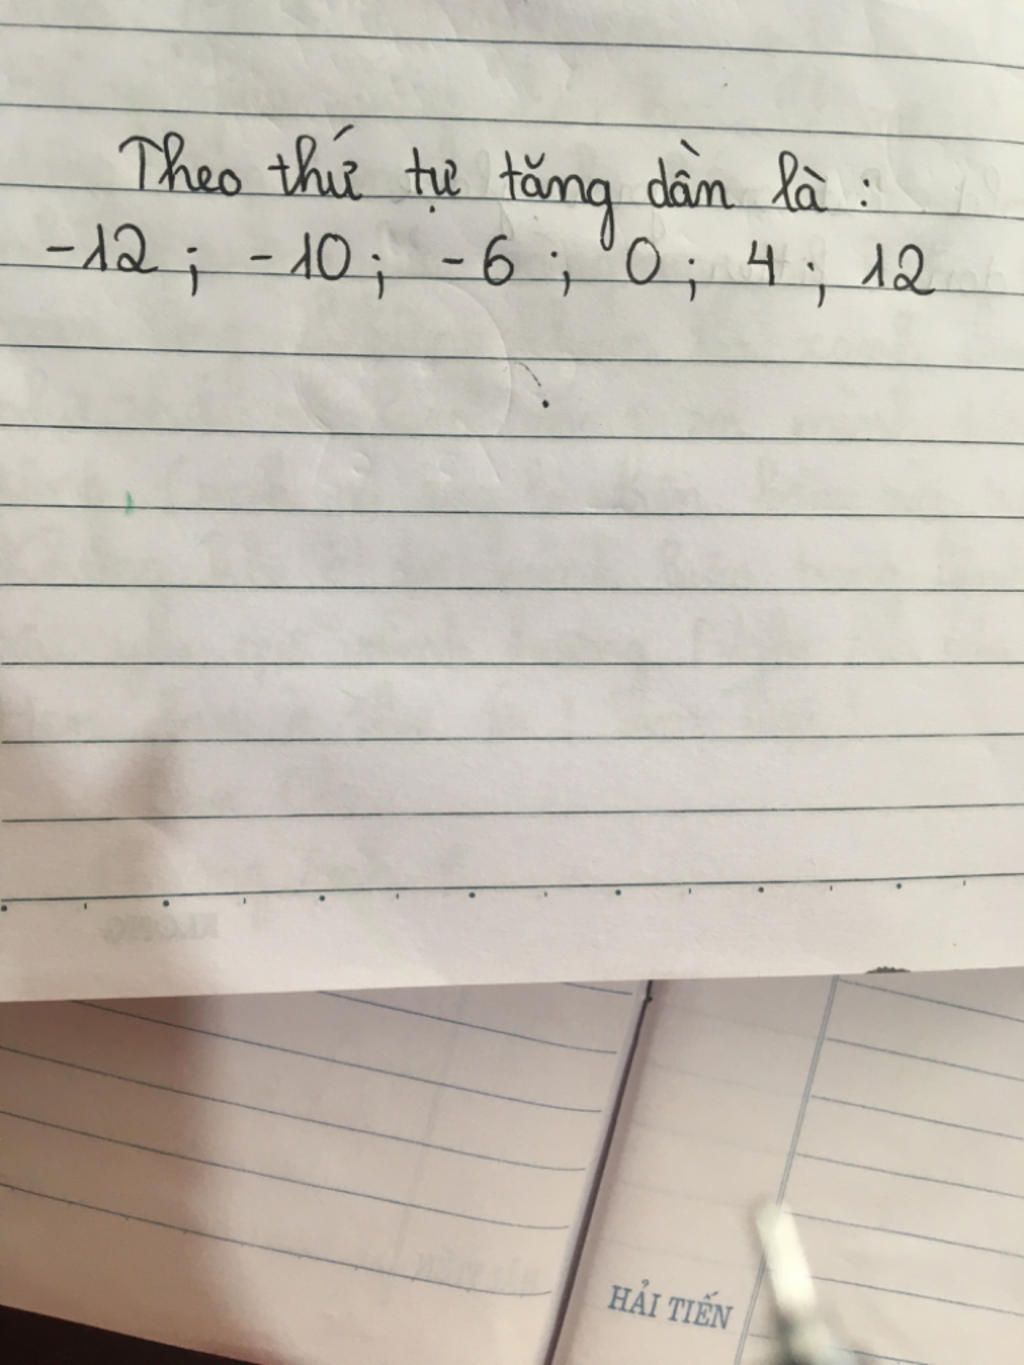 Theo thứ tự tăng dần là :
-12 ; -10 ; -6 ; 0 ; 4 ; 12
HẢI TIẾN